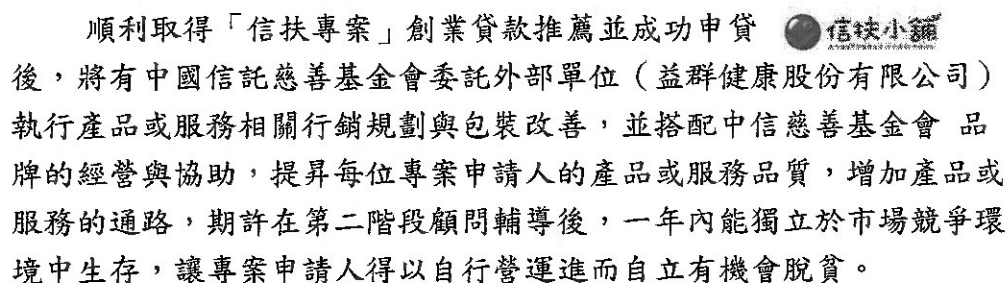 順利取得「信扶專案」創業貸款推薦並成功申貸 信扶小舖
後，將有中國信託慈善基金會委託外部單位（益群健康股份有限公司）
執行產品或服務相關行銷規劃與包裝改善，並搭配中信慈善基金會 品
牌的經營與協助，提昇每位專案申請人的產品或服務品質，增加產品或
服務的通路，期許在第二階段顧問輔導後，一年內能獨立於市場競爭環
境中生存，讓專案申請人得以自行營運進而自立有機會脫貧。